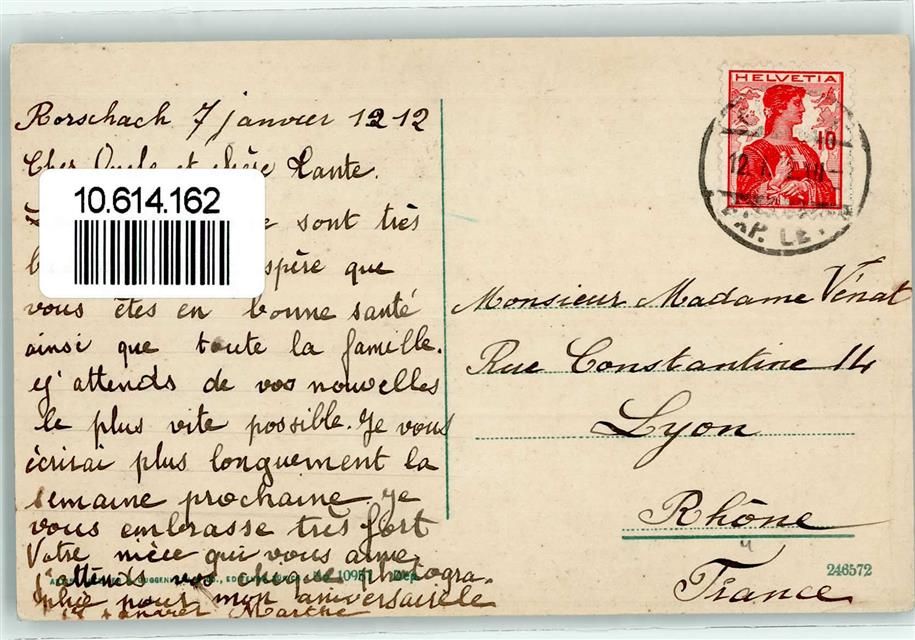 Rorschach 7 janvier 1912
Cher Oncle et chère Tante.
10.614.162
sont très
espère que
vous êtes en bonne santé
ainsi que toute la famille.
J'attends de vos nouvelles
le plus vite possible. Je vous
écrirai plus longuement la
semaine prochaine. Je
vous embrasse très fort
Votre nièce qui vous aime
J'attends vos photogra-
phie pour mon aniversairele
janvier Marthe
10951 Dep.
HELVETIA
10
EXP. LE
Monsieur Madame Vénat
Rue Constantine 14
Lyon
Rhône
France
246572